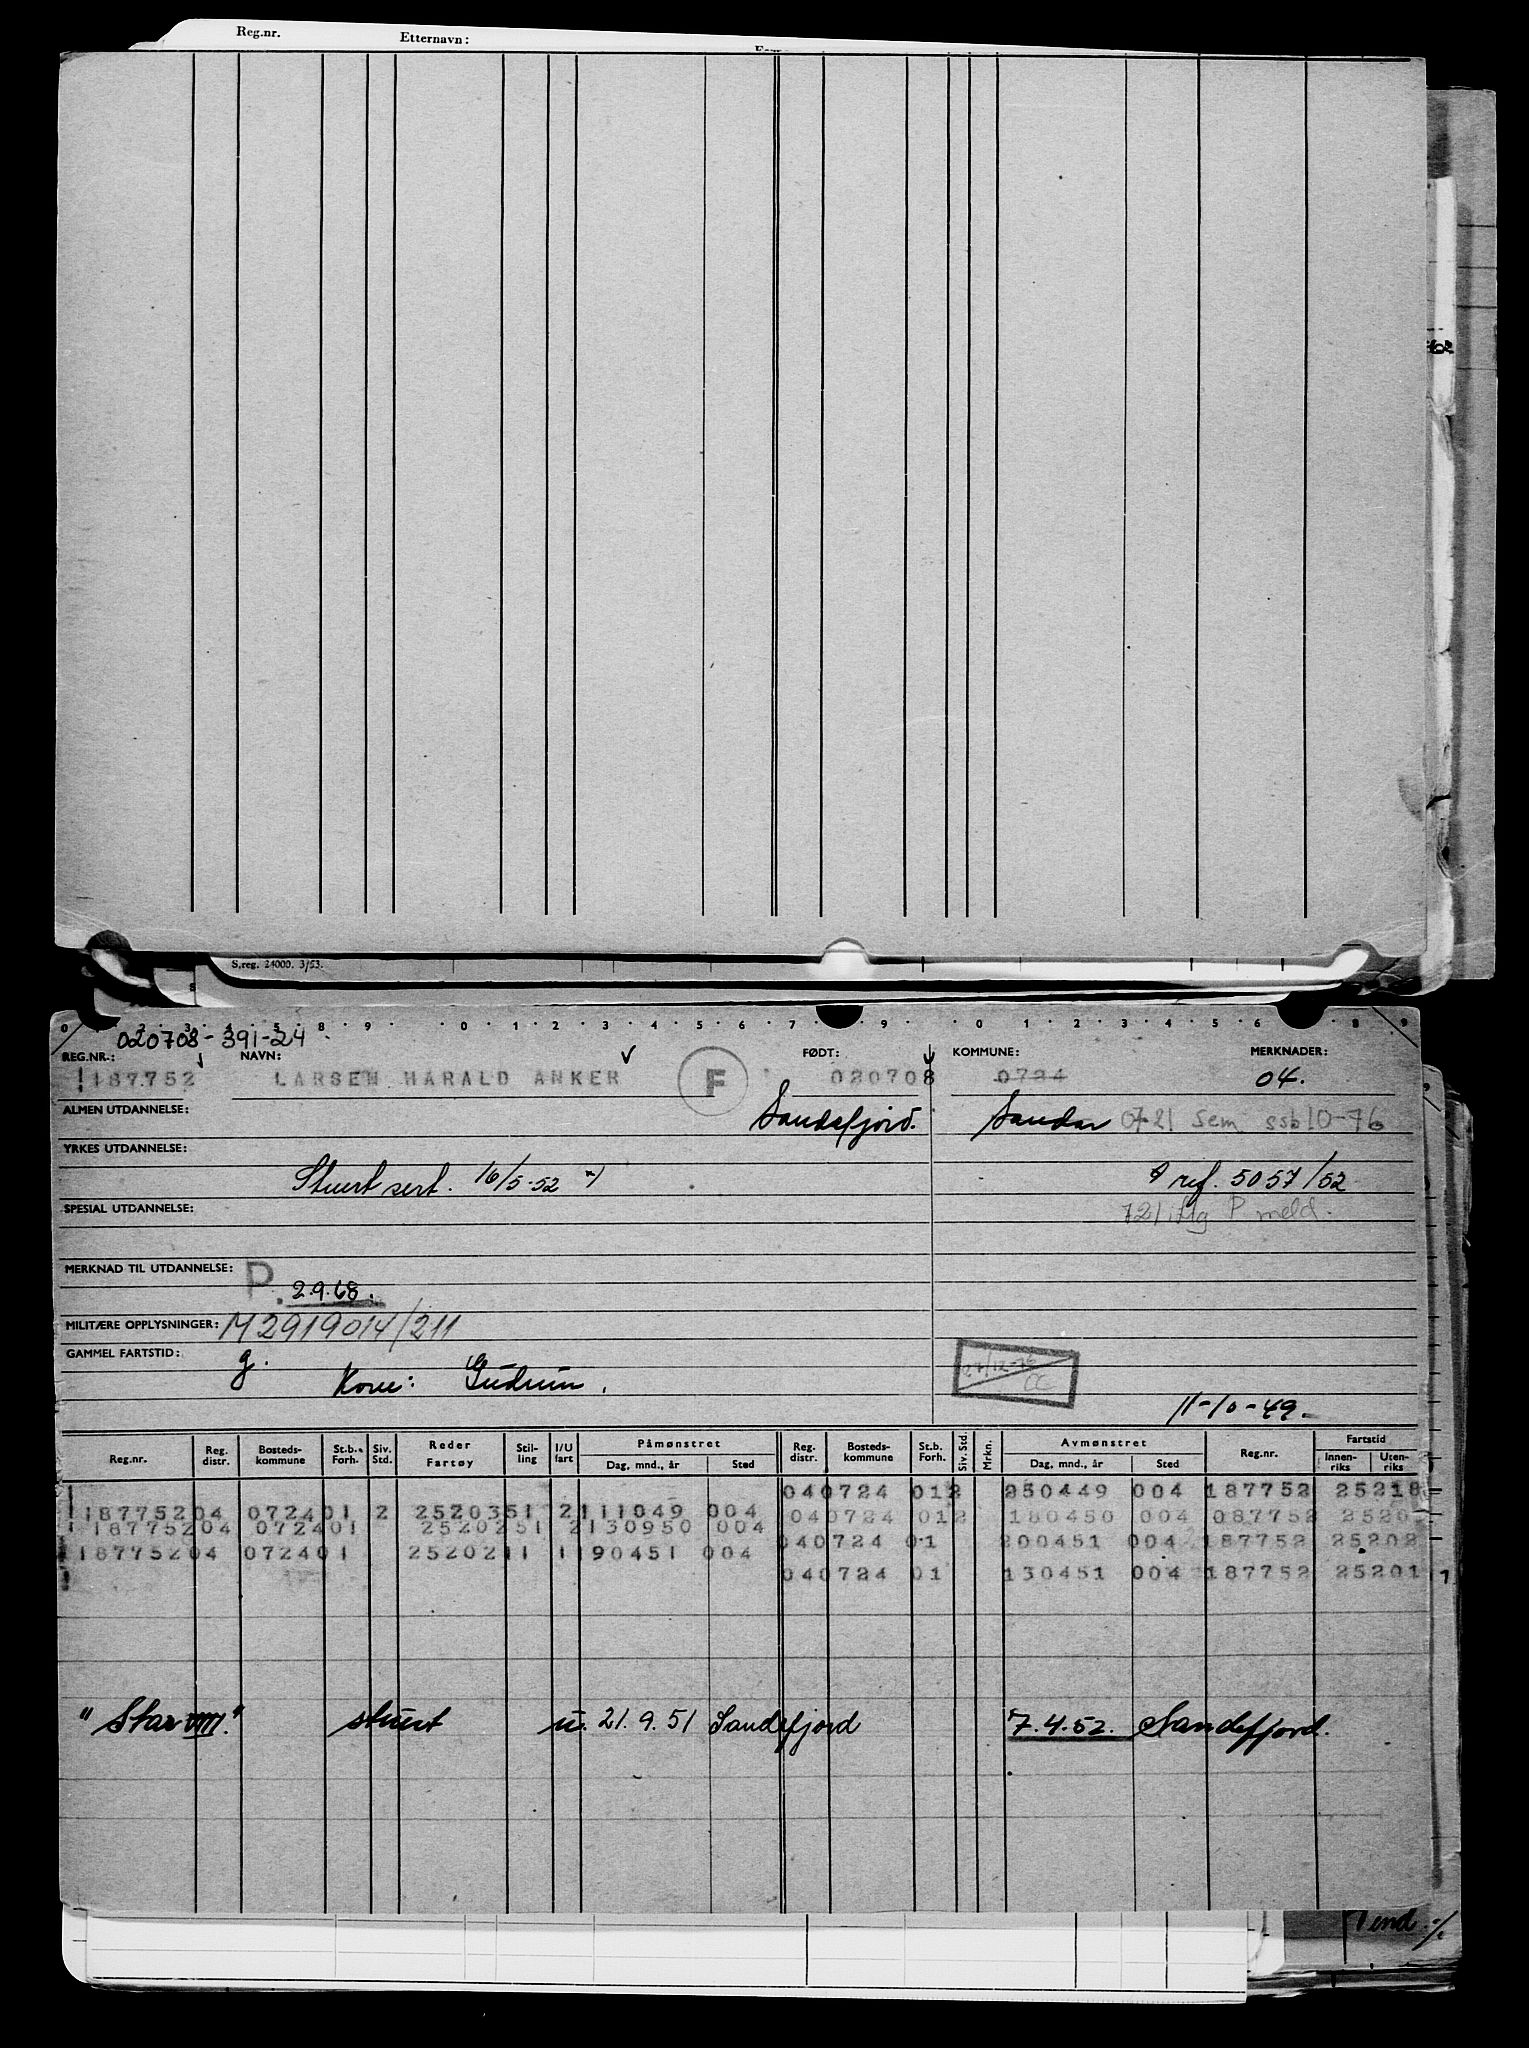 Reg.nr. Etternavn:
S.reg. 24000. 3/53.
020708-391-24
REG.NR.: NAVN: FØDT: KOMMUNE: MERKNADER:
187752 LARSEN HARALD ANKER F 020708 0724 04.
ALMEN UTDANNELSE: Sandefjord. Sandar 0721 Sem ssb 10-76
YRKES UTDANNELSE:
Stuert sert. 16/5-52 *) ref. 5057/52
SPESIAL UTDANNELSE: P meld.
MERKNAD TIL UTDANNELSE: P. 2.9.68.
MILITÆRE OPPLYSNINGER: M2919014/211
GAMMEL FARTSTID: g.
Kone: Gudrun.
11-10-49.
Reg.nr. Reg. distr. Bosteds-kommune St.b. Forh. Siv. Std. Reder Fartøy Stil-ling I/U fart Påmønstret Dag, mnd., år Sted Reg. distr. Bosteds-kommune St.b. Forh. Siv. Std. Mrkn. Avmønstret Dag, mnd., år Sted Reg.nr. Fartstid Innen-riks Uten-riks
040724 012 250449 004 187752 25218
187752 04 0724 01 2 2520351 2 111049 004 040724 012 180450 004 087752 2520
187752 04 0724 01 2520251 2 130950 004
040724 01 200451 004 187752 25202
187752 04 0724 01 2520211 1 190451 004
040724 01 130451 004 187752 25201
"Star VIII." stuert u. 21.9.51 Sandefjord 7.4.52. Sandefjord.
Vend ./.